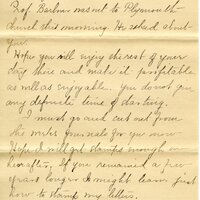 Prof. Barbour was out to Plymouth
church this morning. He asked about
you.
Hope you will enjoy the rest of your
stay there and make it profitable
as well as enjoyable. You do not say
any definite time of starting.
must go and cut out from
the miles for you now
Hope I will get stamps enough on
hereafter. If you remained a few
years longer I might learn just
how to stamp my letters.